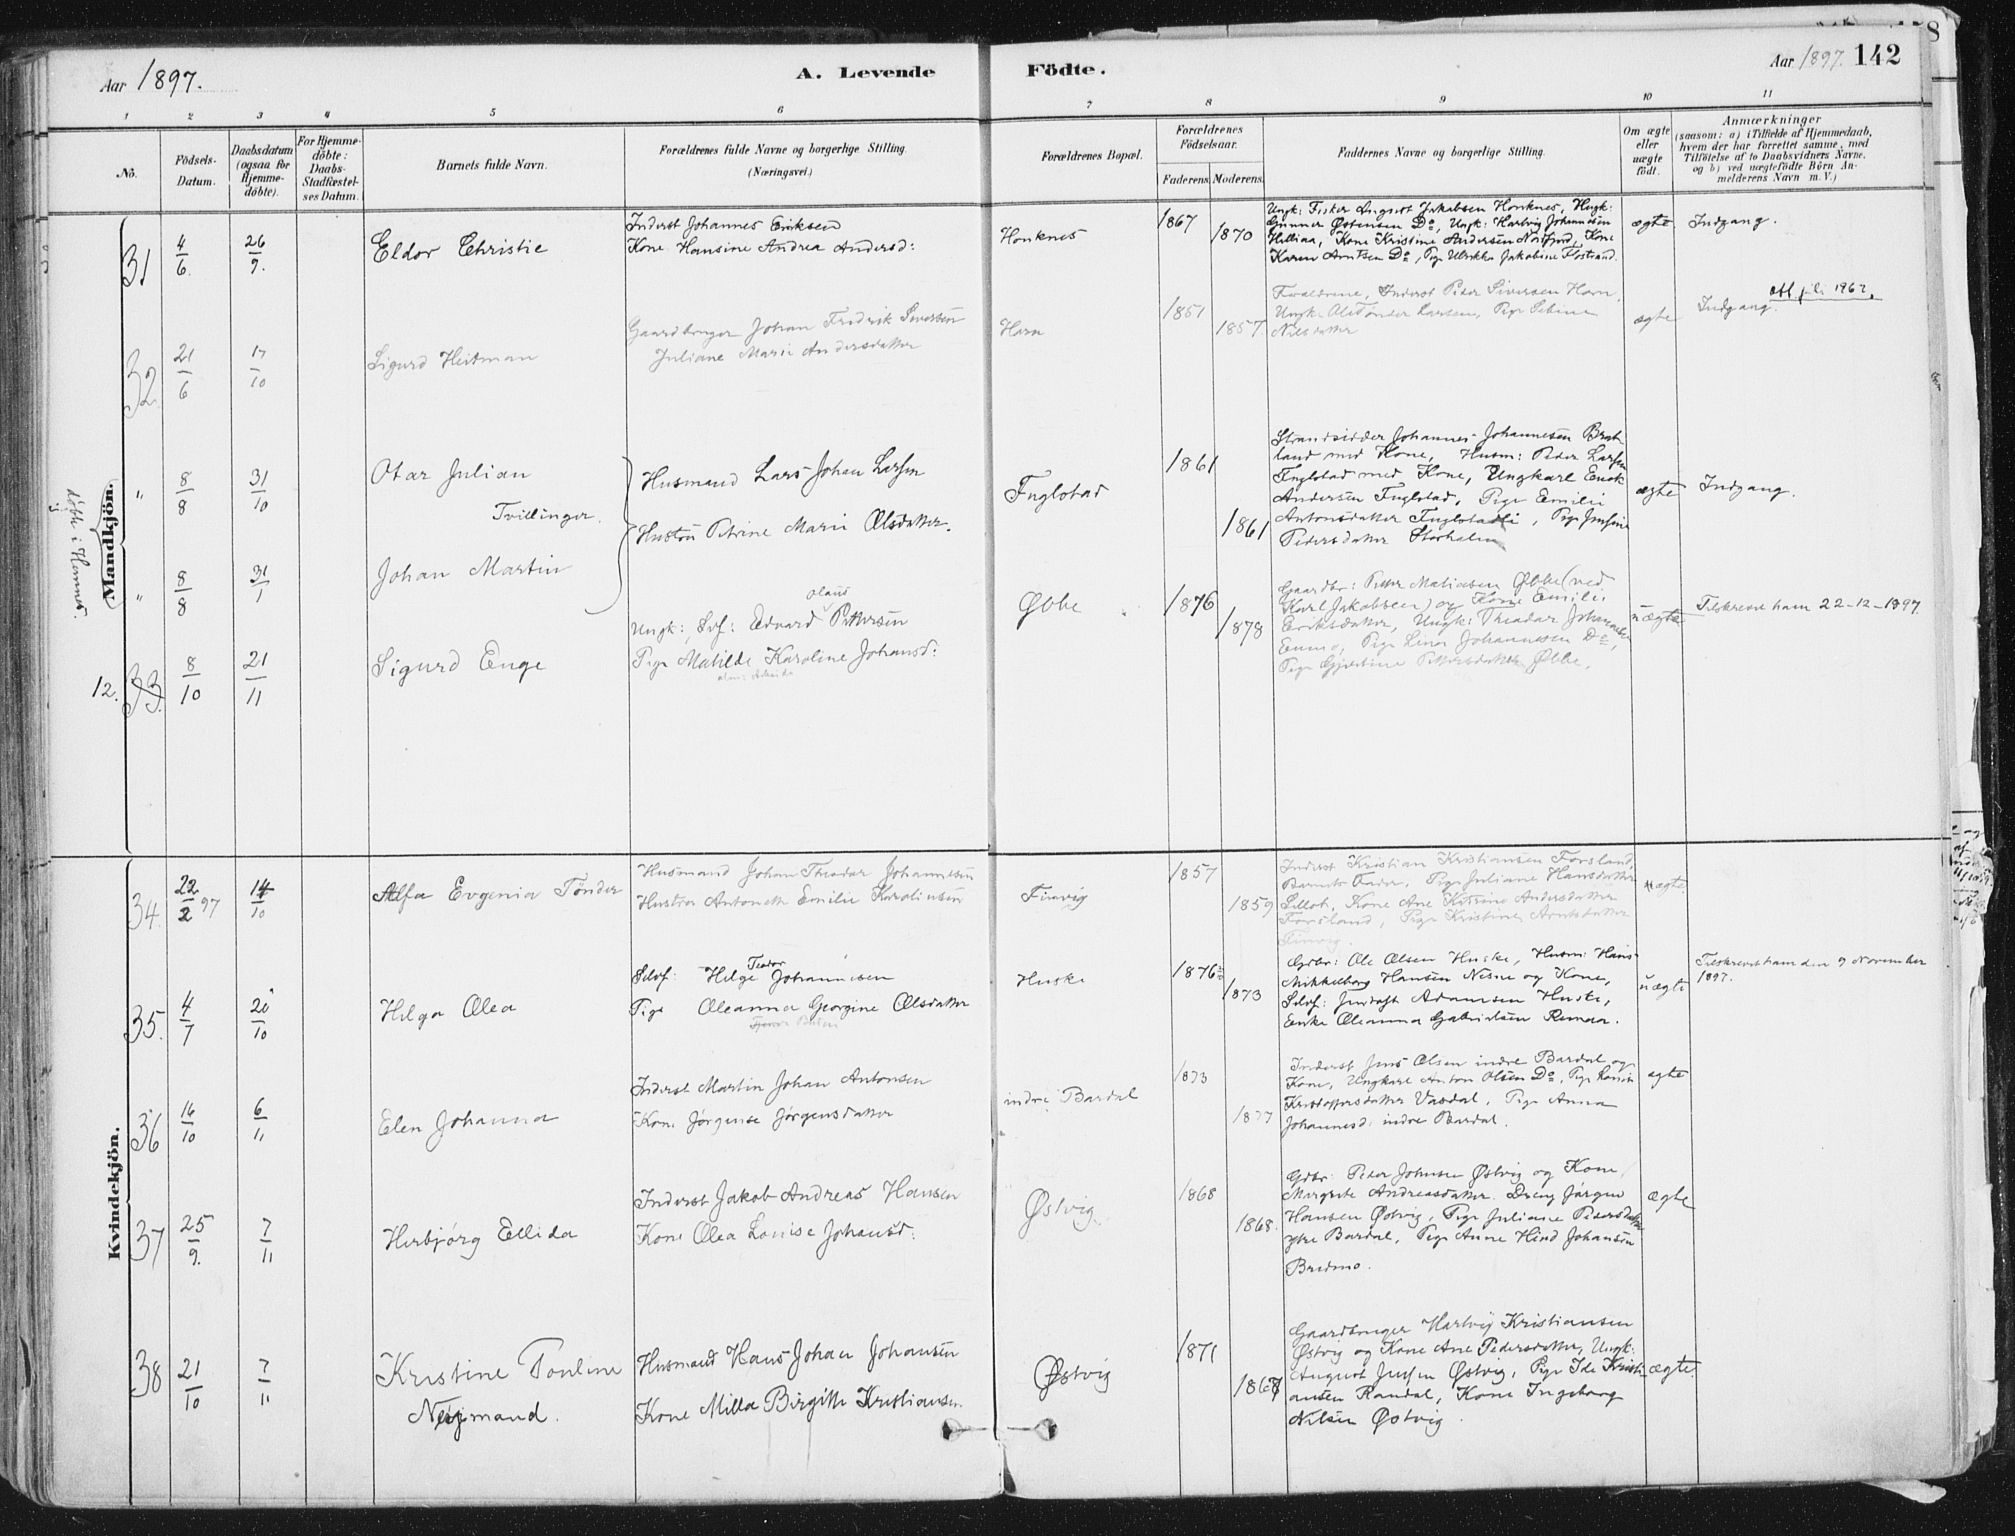 Aar 1897.
A. Levende Födte.
Aar 1897. 142
1 2 3 4 5 6 7 8 9 10 11
No.
Födsels-Datum.
Daabsdatum (ogsaa for Hjemme-döbte).
For Hjemme-döbte: Daabs-Stadfæstel-ses Datum.
Barnets fulde Navn.
Forældrenes fulde Navne og borgerlige Stilling.
(Næringsvei.)
Forældrenes Bopæl.
Forældrenes Födselsaar.
Faderens. Moderens.
Faddernes Navne og borgerlige Stilling.
Om ægte eller uægte födt.
Anmærkninger
(saasom: a) i Tilfælde af Hjemmedaab, hvem der har forrettet samme, med Tilföielse af to Daabsvidners Navne, og b) ved uægtefödte Börn An-melderens Navn m. V.)
Mandkjön.
döbte i Hemnes.
31 4/6. 26/9. Eldor Christie
Inderst Johannes Eriksen
Kone Hansine Andrea Andersd:
Honknes 1867 1870
Ungk: Fisker August Jakobsen Honknes, Ungk:
Gunner Østensen Do, Ungk: Hartvig Johannesen
Kone Kristine Andersen Kone
Karen Arntsen Do, Pige Ulrikka Jakobine
ægte Indgang.
32. 21/6 17/10 Sigurd Heitman
Gaardbruger Johan Fredrik Sivertsen
Juliane Marie Andersdatter
Havn 1851 1857
Forældrene, Inderst Peder Siversen Havn,
Ungk. Larsen, Pige
Nilsdatter
ægte Indgang.
1962.
" 8/8 31/10 Otar Julian
Tvillinger.
Husmand Lars Johan Larsen
Hustru Petrine Marie Olsdatter.
Fuglstad 1861 1861
Strandsidder Johannes Johannesen Brat-
land med Kone, Husm: Peder Larsen
Fuglstad med Kone, Ungkarl Enok
Andersen Fuglstad, Pige Emilie
Antonsdatter Fuglstad, Pige
Pedersdatter
ægte Indgang.
" 8/8 31/1 Johan Martin
12. 33. 8/10 21/11 Sigurd Enge
Olaus
Ungk: Edvard Pettersen
Pige Matilde Karoline Johansd:
Øbbe 1876 1878
Gaardbr: Petter Matiasen Øbbe (ved
Karl Jakobsen) og Kone Emilie
Eriksdatter, Ungk: Theodor
Pige Lina Johannesen Do,
Pige Pettersdatter Øbbe.
uægte Tilskrevet ham 22-12-1897
Kvindekjön.
34. 22/2 97 14/10 Alfa Evgenia Tönder
Husmand Johan Theodor Johannesen
Hustru Antonette Emilie Karoliusen
Finvig 1857 1859
Inderst Kristian Kristiansen Forsland,
Barnets Fader, Pige Juliane Hansdatter
Kone Ane Katrine Andersdatter
Forsland, Pige Kristine Arntsdatter
Finvig.
ægte.
35. 4/7 20/10 Helga Olea
Teodor
Selvf: Helge Johannesen
Pige Oleanna Georgine Olsdatter
Huske 1876 1873
Gdbr: Ole Olsen Huske, Husm: Hans
Mikkelborg Hansen Nesne og Kone,
Selvf: Adamsen Huske,
Enke Oleanna Gabrielsen
uægte Tilskrevet ham den 9 November
1897.
36 16/10 6/11 Elen Johanna
Inderst Martin Johan Antonsen
Kone Jørgense Jørgensdatter
indre Bardal 1873 1877
Inderst Jens Olsen indre Bardal og
Kone, Ungkarl Anton Olsen Do, Pige
Kristoffersdatter Vasdal, Pige Anna
Johannesd: indre Bardal.
ægte
37 25/9. 7/11 Herbjørg Ellida
Inderst Jakob Andreas Hansen
Kone Olea Louise Johansd:
Østvig 1868 1868.
Gdbr: Peder Johnsen Østvig og Kone
Margrete Andreasdatter. Dreng Jørgen
Hansen Østvig, Pige Juliane Pedersdatter
ytre Bardal, Pige Anne Hind Johansen
Bredmo.
ægte
38 21/10 7/11 Kristine Pouline
Neymand.
Husmand Hans Johan Johansen
Kone Milla Birgitte Kristiansen
Østvig 1871 1867
Gaardbruger Hartvig Kristiansen
Østvig og Kone Ane Pedersdatter, Ungk:
August Jensen Østvig, Pige Ida Kristi-
ansen Randal, Kone Ingeborg
Nilsen Østvig.
ægte.